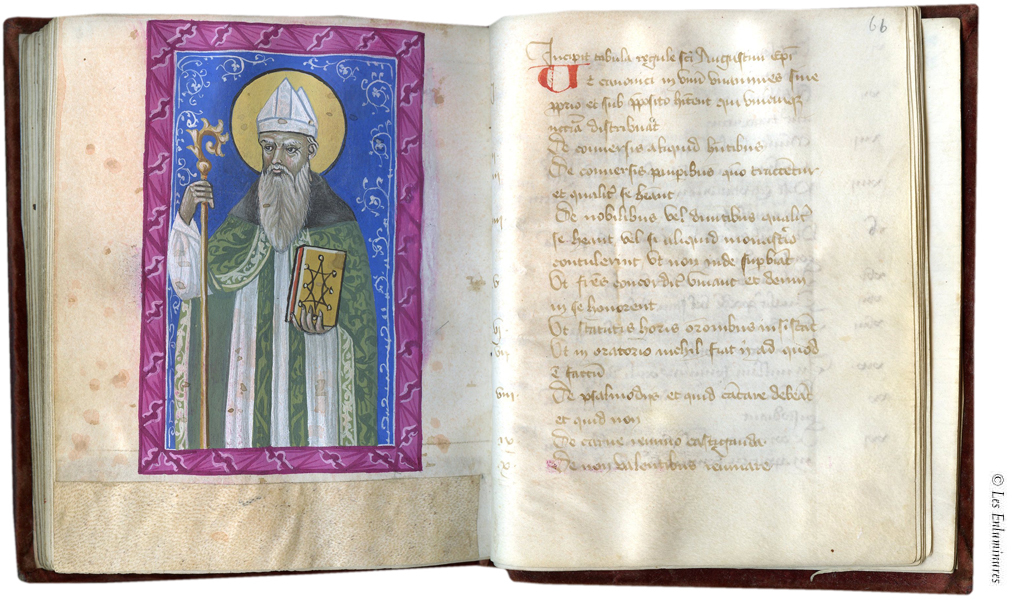 66
Incipit tabula regule sci Augustini epi
Ut canonici in unu unanimes sine
pprio et sub pposito hitent qui unicuiqz
nccria distribuat
De conversis aliquid hntibus
De conversis paupibus quo tractentur
et qualit se heant
De nobilibus vel divitibus qualit
se heant vel si aliquid monastio
contulerint ut non inde supbiat
Ut fres concordit vivant et deum
in se honorent
Ut statutis horis oronibus insistat
Ut in oratorio nichil fiat n ad quod
e factu
De psalmodiis et quid catare debeat
et quid non
De carne ieiunio castiganda
De non valentibus ieiunare
© Les Enluminures